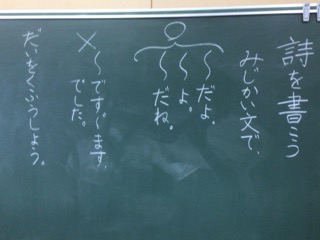 詩を書こう
みじかい文で、
○
〜だよ。
〜よ。
〜だね。
×〜です。〜ます。
でした。
だいをくふうしよう。